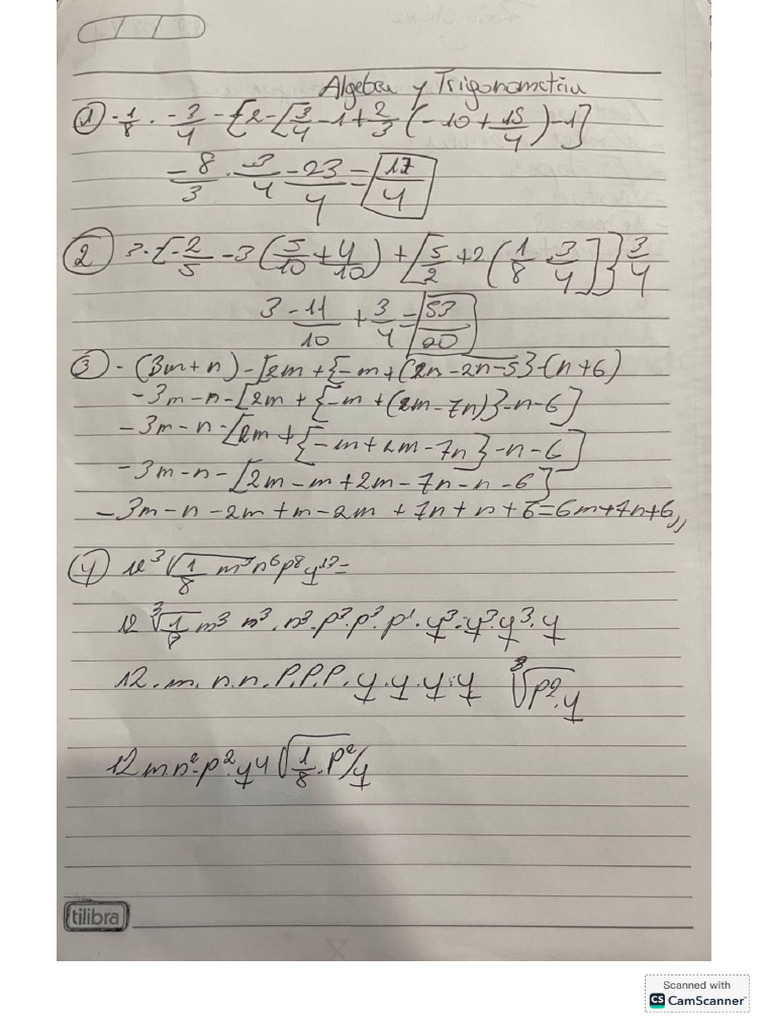 Algebra y Trigonometria
① -1/8 · -3/4 - {2 - [3/4 - 1 + 2/3 (-10 + 15/4) - 1]
-8/3 · -3/4 - 23/4 = 17/4
② 3 · {-2/5 - 3 (5/10 + 4/10) + [5/2 + 2 (1/8 · 3/4]} 3/4
3 - 11/10 + 3/4 = 53/20
③ - (3m + n) - [2m + {-m + (2n - 2n - 5} - (n + 6)
-3m - n - [2m + {-m + (2m - 7n)} - n - 6]
-3m - n - [2m + {-m + 2m - 7n} - n - 6]
-3m - n - [2m - m + 2m - 7n - n - 6]
-3m - n - 2m + m - 2m + 7n + n + 6 = 6m + 7n + 6,,
④ 12 ³√1/8 m³n⁶p⁸y¹³ =
12 ³√1/8 m³ n³ · n³ · p³ · p³ · p¹ · y³ · y³ · y³ · y
12 · m · n · n · P · P · P · y · y · y · y ³√p² · y
12 m n² · p² · y4 √1/8 · p²/y
tilibra
Scanned with
CS CamScanner